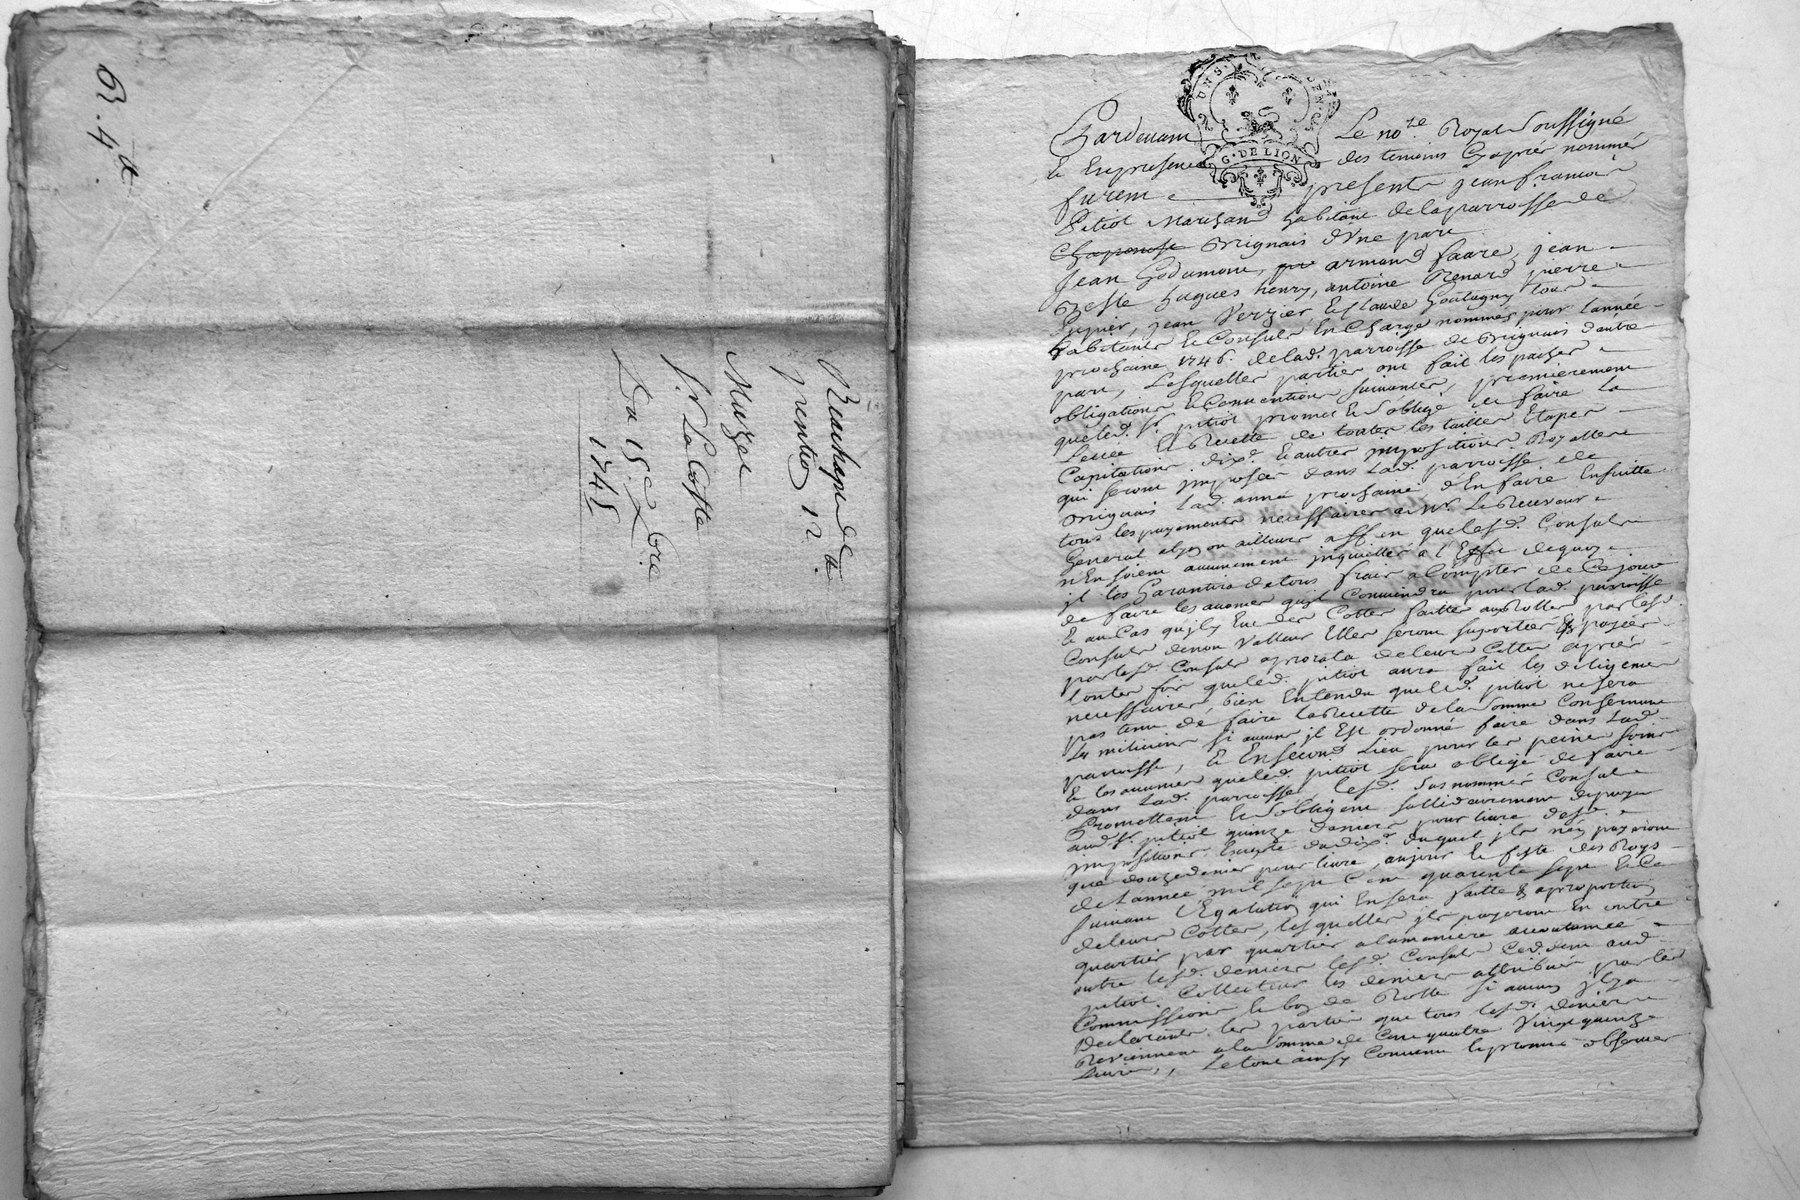 B. 4 #
Du 15e xbre
1745
Pardevant Le nore Royal Soussigné
& En presence des temoins Cy aprés nommés
furent presents jean francois
Pitiot Marchand habitant de la parroisse de
Chaponost Brignais d'Une part
Jean Godemone, armand faure, jean
hugues henry, antoine Renard pierre
jean Verzier, & Claude Goutagny tous
habitants & Consuls En Charge nommés pour l'année
prochaine 1746. de lad. parroisse de Brignais d'autre
part, Lesquelles parties ont fait les paches
obligations & Conventions suivantes, premierement
que led. sr pitiot promet & s'oblige de faire la
Levée & Recette de toutes les tailles Etapes
Capitations, dixe & autres impositions Royalles
qui seront imposées dans lad. parroisse de
Brignais lad. année prochaine d'En faire Ensuitte
tous les payements necessaires a Mr. Le Receveur
General alyon ou ailleurs affin que lesd. Consuls
n'En soient aucunement inquiettés a l'Effet dequoy
il les Garantira de tous frais a Compter de Ce jour
de faire les avances qu'il Conviendra pour lad. parroisse
& au Cas qu'il y Eut des Cottes faittes aux Rolles par lesd.
Consuls de non Valleur Elles seront suportées & payées
par lesd. Consuls aprorata de leurs Cottes aprés
toutes fois que led. pitiot aura fait les diligences
necessaires, bien Entendu que led. pitiot ne sera
pas tenu de faire la Recette de la somme Concernant
La milicien si aucune il Est ordonné faire dans lad.
parroisse, & En second Lieu pour les peines soins
& les avances que led. pitiot sera obligé de faire
dans lad. parroisse, lesd. susnommés Consuls
Promettent & s'obligent sollidairement de payer
aud. sr pitiot quinze deniers pour livre desd.
impositions, Excepté du dixe duquel ils n'en payeront
que douze deniers pour livre, au jour & feste des Roys
de l'année mil sept Cent quarente sept & Ce
suivant l'Egalation qui En sera faitte & aproportion
de leurs Cottes, lesquelles ils payeront En outre
quartier par quartier a la maniere accoutumée
outre lesd. deniers lesd. Consuls Cedent aud.
pitiot Collecteur les deniers attribués par les
Commissions le bon de Rolle si aucun il y a
Declarants les parties que tous lesd. deniers
Reviennent a la somme de Cent quatre Vingt quinze
Livres,, Le tout ainsy Convenu & promis observer
G. DE LION